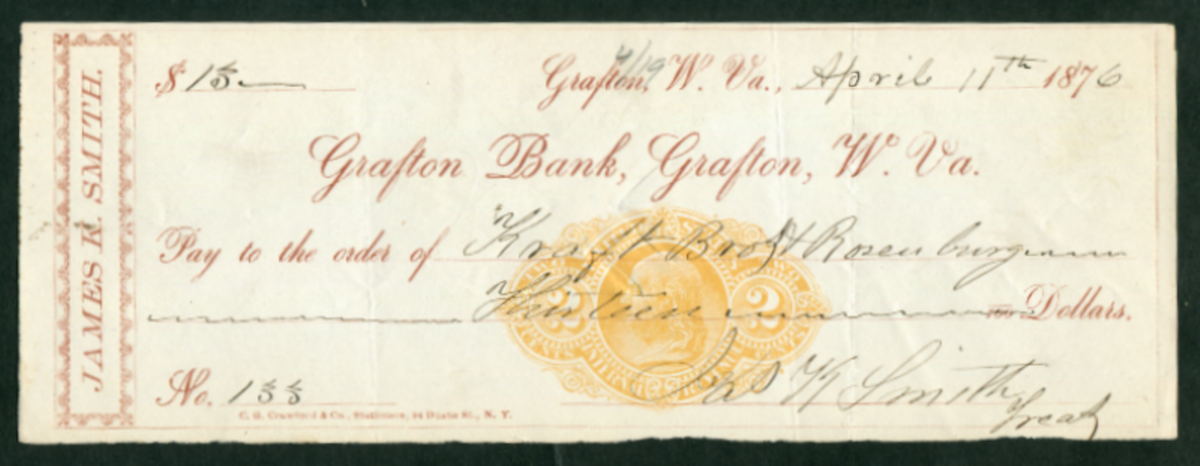 JAMES K. SMITH.
$ 13
4/19
Grafton, W. Va., April 11th 1876
Grafton Bank, Grafton, W. Va.
Pay to the order of Kraft Bros & Rosenburg
Thirteen Dollars.
2 2
CENTS
No. 133
Jas K Smith
Treas
C. G. Crawford & Co., Stationers, 94 Duane St., N. Y.